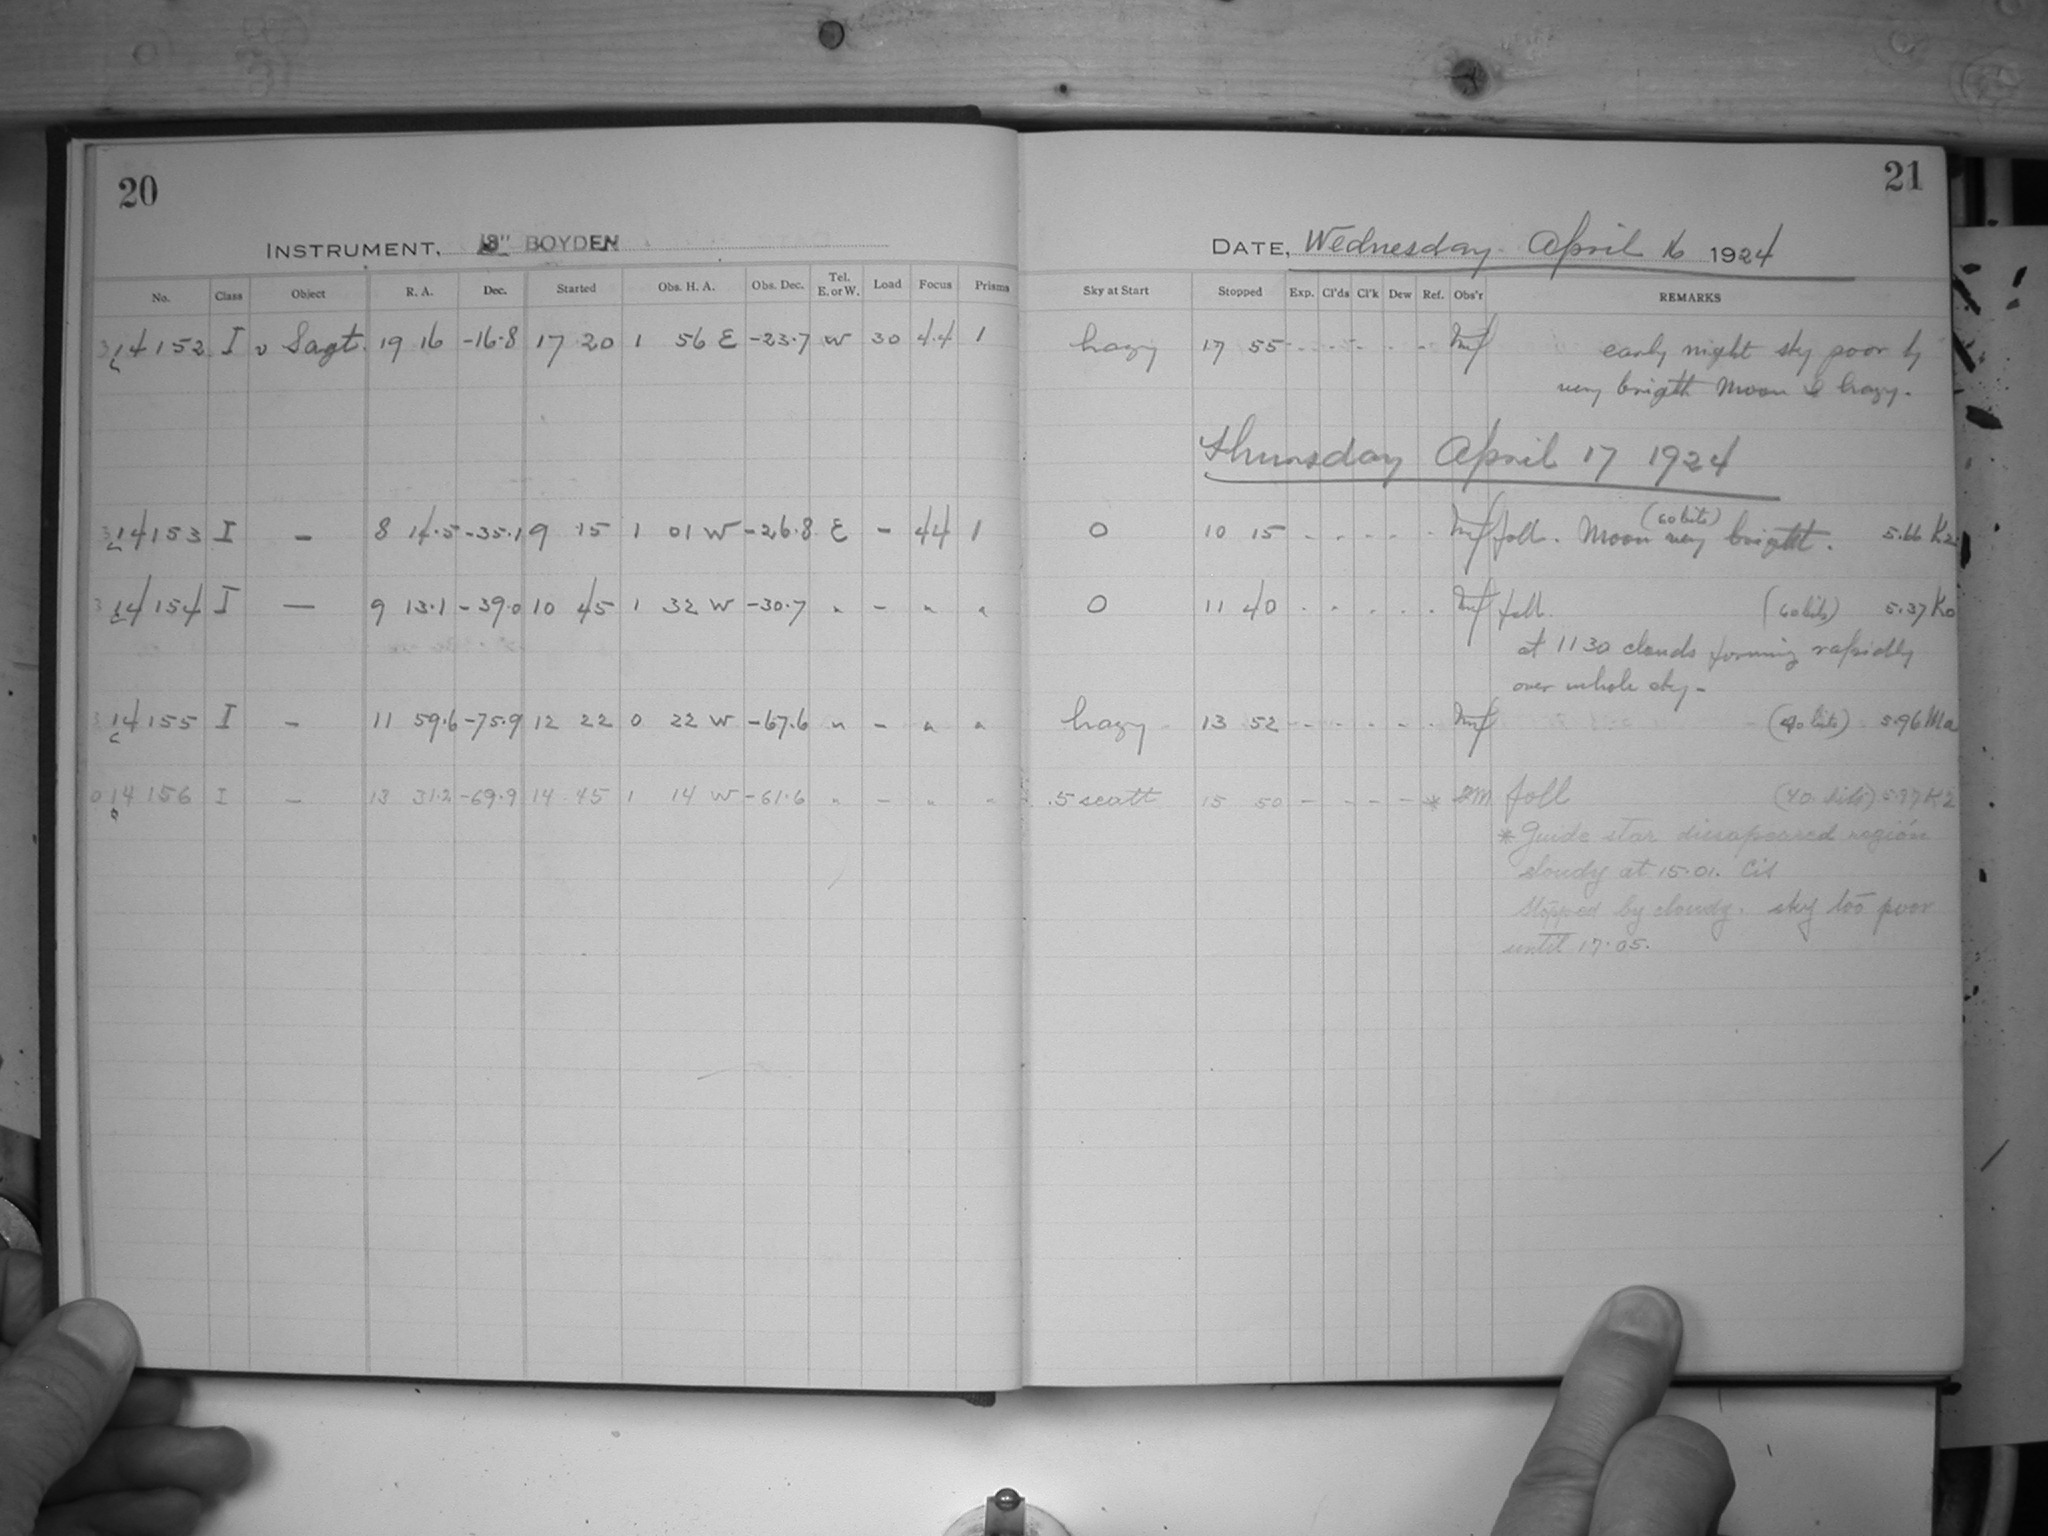 20
21
INSTRUMENT, 8" BOYDEN
DATE, Wednesday April 16 1924
No. Class Object R. A. Dec. Started Obs. H. A. Obs. Dec. Tel. E. or W. Load Focus Prisms
Sky at Start Stopped Exp. Cl'ds Cl'k Dew Ref. Obs'r REMARKS
14152 I υ Sagt. 19 16 -16.8 17 20 1 56 E -23.7 W 30 4.4 1 hazy 17 55 - - - - - early night sky poor by
very brigth Moon & hazy.
Thursday April 17 1924
14153 I - 8 14.5 -35.1 9 15 1 01 W -26.8 E - 44 1 0 10 15 - - - - - foll. Moon very brigtht. (60 bits) 5.66 K2
14154 I - 9 13.1 -39.0 10 45 1 32 W -30.7 " - " " 0 11 40 - - - - - foll. (60 bits) 5.37 K0
at 11 30 clouds forming rapidly
over whole sky -
14155 I - 11 59.6 -75.9 12 22 0 22 W -67.6 " - " " hazy 13 52 - - - - - (40 bits) 5.96 Ma
14156 I - 13 31.2 -69.9 14 45 1 14 W -61.6 " - " " .5 scatt 15 50 - - - - * foll (40 bits) K2
* Guide star dissapeared región
cloudy at 15.01. Cis
Stopped by cloudy. sky too poor
until 17.05.